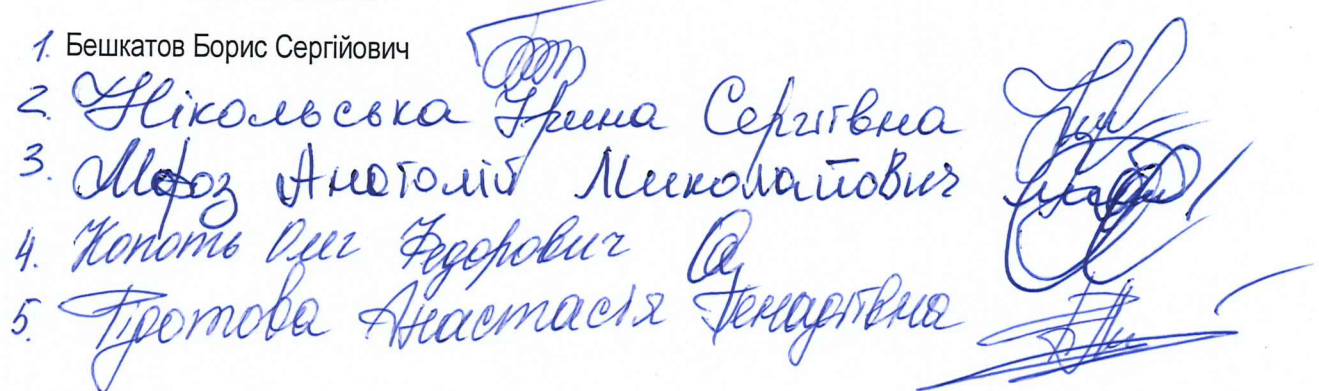 1. Бешкатов Борис Сергійович
2. Нікольська Ірина Сергіївна
3. Мороз Анатолій Миколайович
4. Копоть Олег Федорович
5. Протова Анастасія Генадіївна